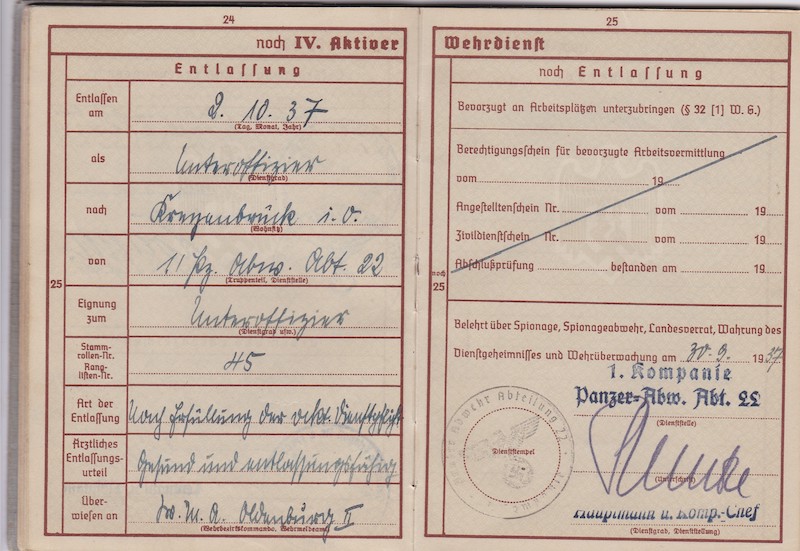 24
noch IV. Aktiver
Entlassung
Entlassen am
2. 10. 37
(Tag, Monat, Jahr)
als
Unteroffizier
(Dienstgrad)
nach
Kreyenbrück i. O.
(Wohnsitz)
von
1./Pz. Abw. Abt. 22
(Truppenteil, Dienststelle)
25
Eignung zum
Unteroffizier
(Dienstgrad usw.)
Stamm-
rollen-Nr.
Rang-
listen-Nr.
45
Art der Entlassung
Nach Erfüllung der akt. Dienstpflicht
Ärztliches Entlassungs-
urteil
Gesund und entlassungsfähig
Über-
wiesen an
W. M. A. Oldenburg II
(Wehrbezirkskommando, Wehrmeldeamt)
25
Wehrdienst
noch Entlassung
Bevorzugt an Arbeitsplätzen unterzubringen (§ 32 [1] W. G.)
Berechtigungsschein für bevorzugte Arbeitsvermittlung
vom 19
Angestelltenschein Nr. vom 19
Zivildienstschein Nr. vom 19
Abschlußprüfung bestanden am 19
noch
25
Belehrt über Spionage, Spionageabwehr, Landesverrat, Wahrung des
Dienstgeheimnisses und Wehrüberwachung am 30. 9. 1937
1. Kompanie
Panzer-Abw. Abt. 22
(Dienststelle)
Abwehr Abteilung 22
Dienststempel
(Unterschrift)
Hauptmann u. Komp.-Chef
(Dienstgrad, Dienststellung)